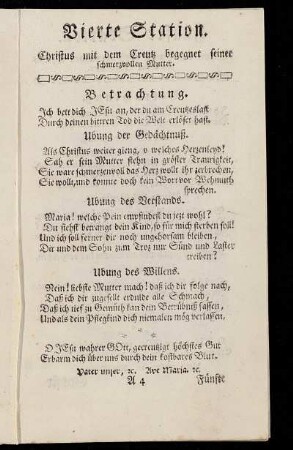 Vierte Station.
Christus mit dem Creutz begegnet seiner
schmerzvollen Mutter.
Betrachtung.
Ich bett dich JEsu an, der du am Creutzeslast
Durch deinen bittren Tod die Welt erlöset hast.
Ubung der Gedächtnuß.
Als Christus weiter gieng, o welches Herzenleyd!
Sah er sein Mutter stehn in gröster Traurigkeit,
Sie ware schmerzenvoll das Herz wollt ihr zerbrechen,
Sie wollt, und konnte doch kein Wort vor Wehmuth
sprechen.
Ubung des Verstands.
Maria! welche Pein empfindest du jezt wohl?
Du siehst betrangt dein Kind, so für mich sterben soll!
Und ich soll ferner dir noch ungehorsam bleiben,
Dir und dem Sohn zum Troz nur Sünd und Laster
treiben?
Ubung des Willens.
Nein! liebste Mutter mach! daß ich dir folge nach,
Daß ich dir zugesellt erdulde alle Schmach,
Daß ich tief zu Gemüth faß dein Betrübnuß fassen,
Und als dein Pflegkind dich niemalen mög verlassen.
* * *
O JEsu wahrer GOtt, gecreutzigt höchstes Gut
Erbarm dich über uns durch dein kostbares Blut.
Vater unser, ꝛc. Ave Maria. ꝛc.
A 4 Fünfte